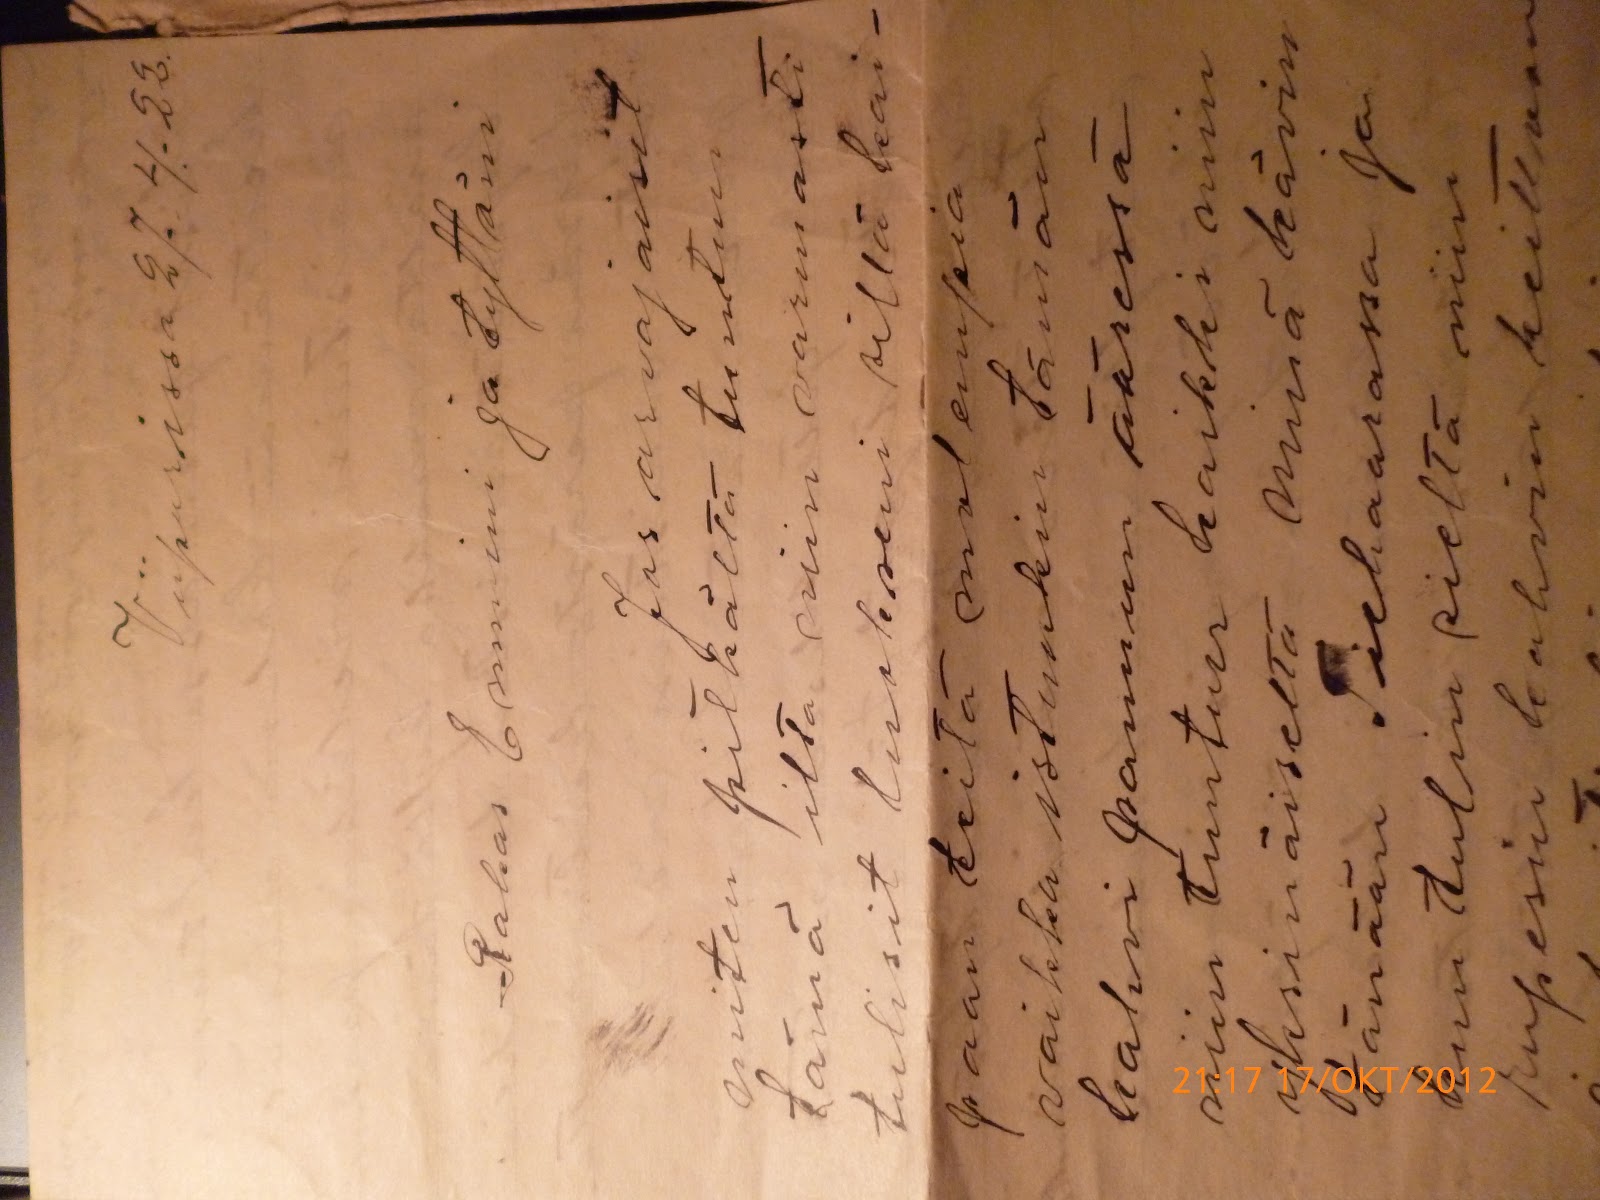 Viipurissa 27.4.-23.
Rakas Emmini ja tyttäni
Jos arvajaisit
miten pitkältä tuntuu
tämä ilta niin varmasti
tulisit luokseni sillä kai-
paan teitä molempia
vaikka istunkin tämän
kahvi pannun ääressä
niin tuntuu kaikki niin
yksinäiseltä Minä kävin
tänään Tieharassa ja
kun tulin sieltä niin
rupesin kahvin keittoon
21:17 17/OKT/2012